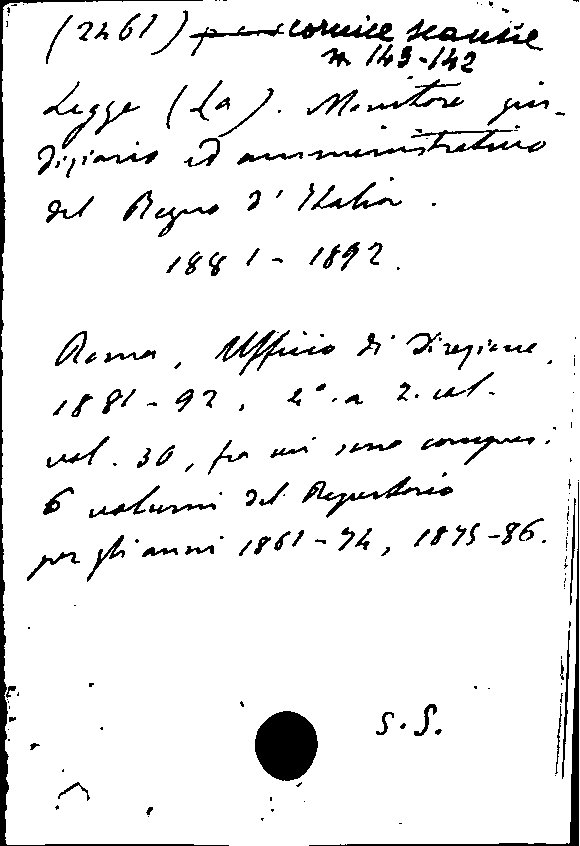 (2461) cornice scansie
n 143-142
Legge (La). Monitore giu-
diziario ed amministrativo
del Regno d'Italia.
1881-1892.
Roma, Ufficio di Direzione,
1881-92, 4°. a 2. col.
vol. 30, fra cui sono compresi
6 volumi del Repertorio
per gli anni 1861-74, 1875-86.
S. S.